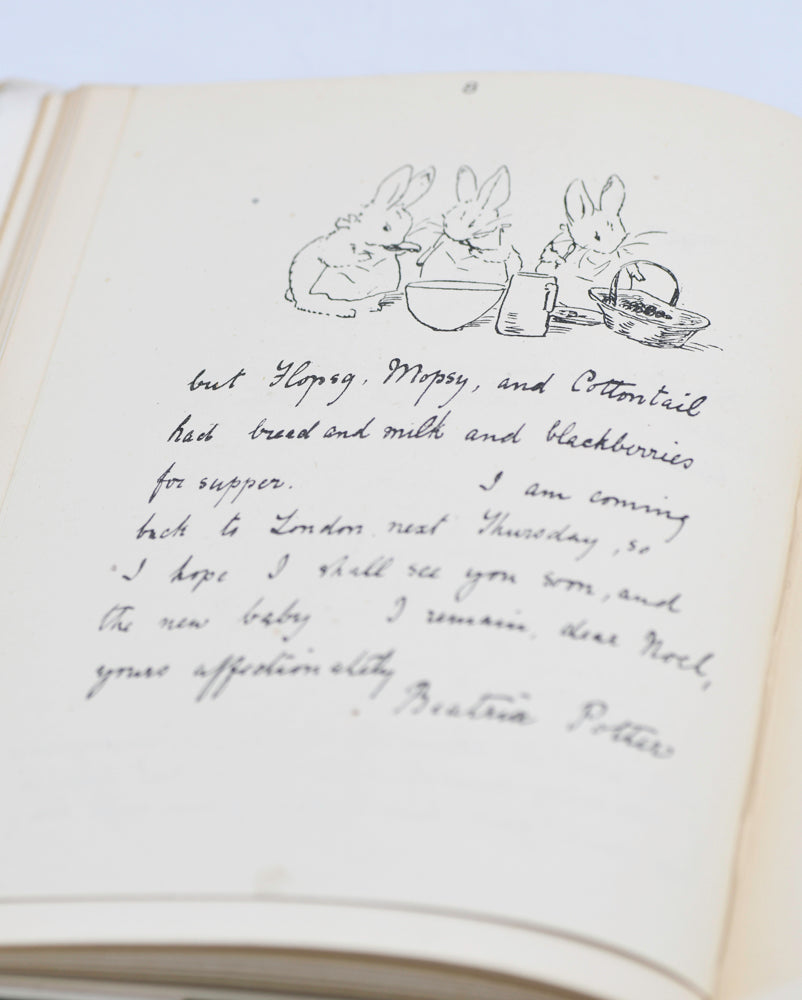 8
but Flopsy, Mopsy, and Cottontail
had bread and milk and blackberries
for supper. I am coming
back to London next Thursday, so
I hope I shall see you soon, and
the new baby I remain, dear Noel,
yours affectionately
Beatrix Potter